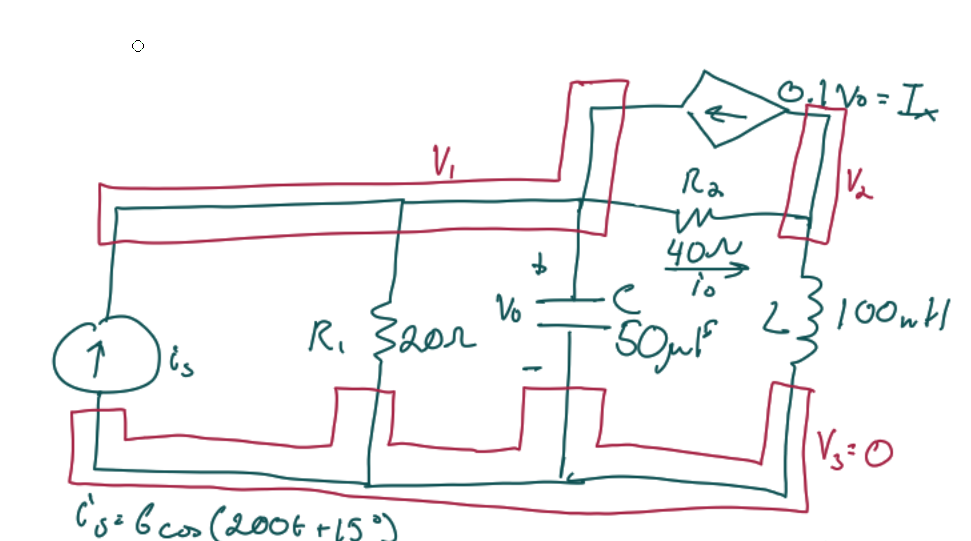 0.1V₀ = Iₓ
V₁
R₂
V₂
40Ω
i₀
+
V₀
C
50μF
-
L
100mH
R₁
20Ω
iₛ
V₃=0
iₛ= 6cos(200t+15°)